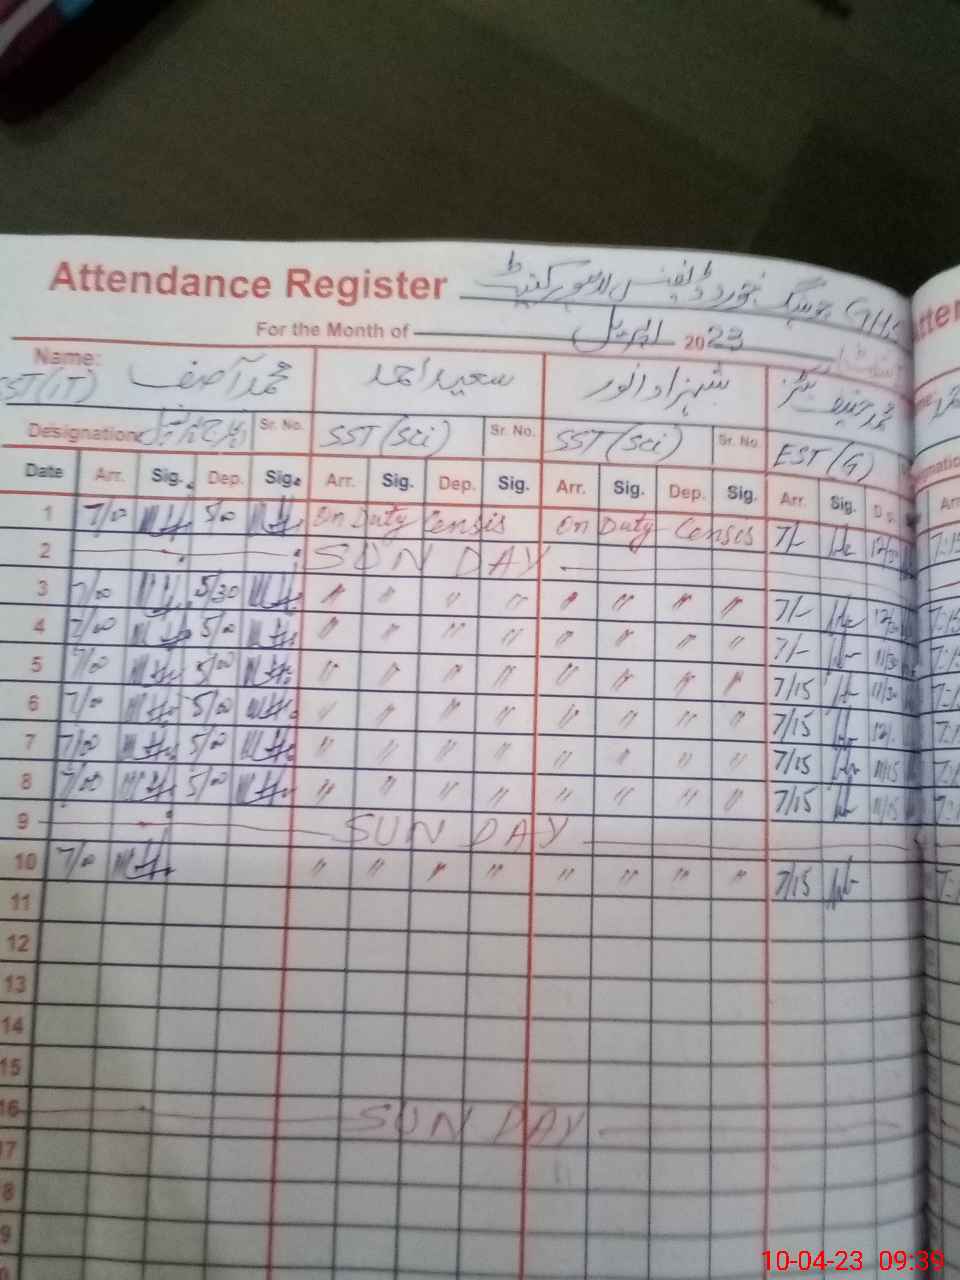 Attendance Register GHS خورد ڈیفنس لاہور کینٹ
For the Month of اپریل 2023
Name: SST(IT) محمد آصف سعید احمد شہزاد انور محمد حنیف
Designation Sr. No. SST (Sci) Sr. No. SST (Sci) Sr. No EST (G)
Date Arr. Sig. Dep. Sig. Arr. Sig. Dep. Sig. Arr. Sig. Dep. Sig. Arr. Sig. D
1 7/00 5/00 On Duty Censis On Duty Censis 7/- 12/30
2 SUNDAY
3 7/00 5/30 " " " " " " " " 7/- 12/30
4 7/00 5/00 " " " " " " " " 7/- 11/30
5 7/00 5/00 " " " " " " " " 7/15 11/30
6 7/00 5/00 " " " " " " " " 7/15 12/-
7 7/00 5/00 " " " " " " " " 7/15 11/15
8 7/00 5/00 " " " " " " " " 7/15 11/15
9 SUNDAY
10 7/00 " " " " " " " " 7/15
11
12
13
14
15
16 SUNDAY
17
8
9
10-04-23 09:39